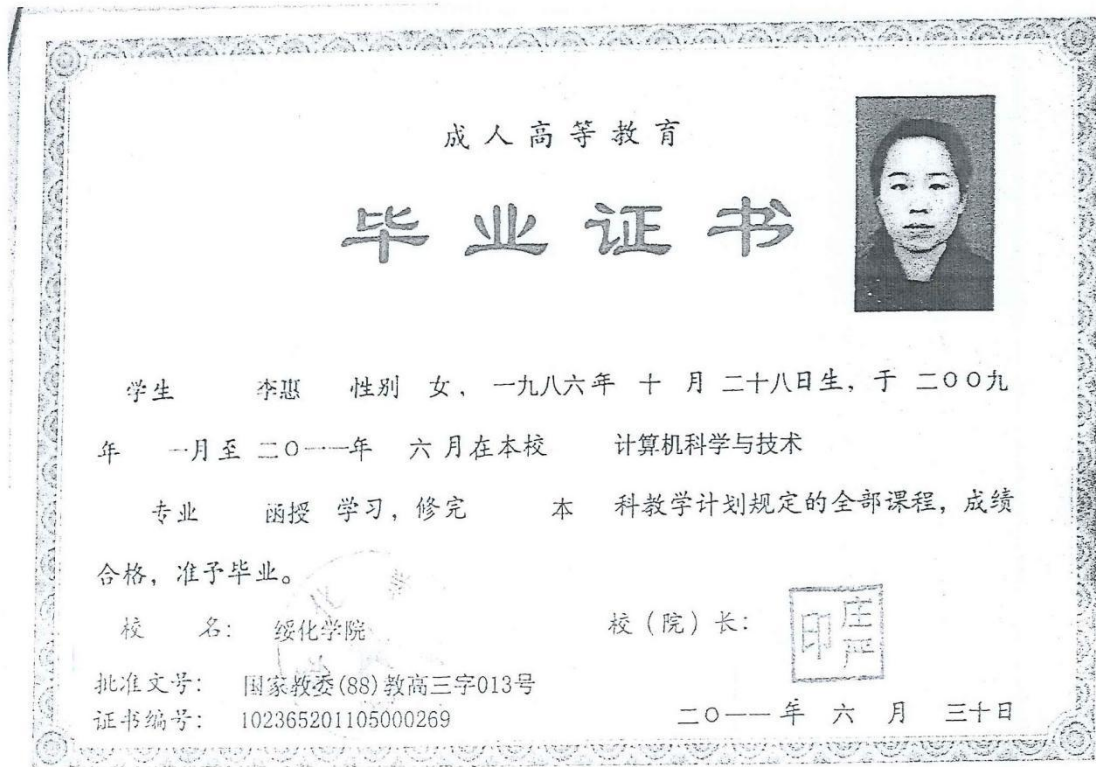 成人高等教育
毕业证书
学生 李惠 性别 女，一九八六年 十 月 二十八日生，于 二〇〇九
年 一月至 二〇一一年 六 月在本校 计算机科学与技术
专业 函授 学习，修完 本 科教学计划规定的全部课程，成绩
合格，准予毕业。
校 名： 绥化学院
校（院）长：
庄严印
批准文号： 国家教委(88)教高三字013号
证书编号： 102365201105000269
二〇一一 年 六 月 三十日